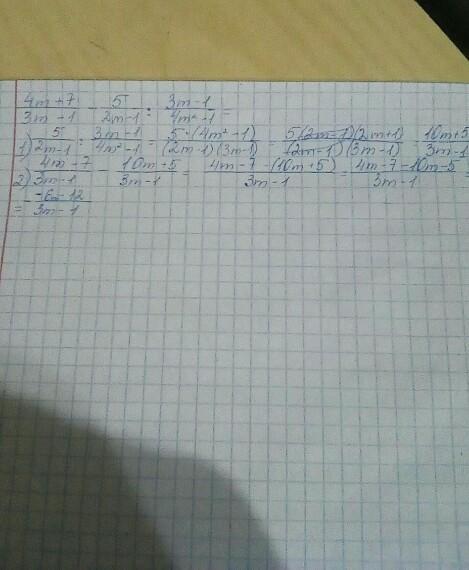 (4m+7)/(3m-1) - 5/(2m-1) : (3m-1)/(4m²-1) =
1) 5/(2m-1) : (3m-1)/(4m²-1) = 5·(4m²-1)/(2m-1)(3m-1) = 5(2m-1)(2m+1)/(2m-1)(3m-1) = (10m+5)/(3m-1)
2) (4m-7)/(3m-1) - (10m+5)/(3m-1) = (4m-7-(10m+5))/(3m-1) = (4m-7-10m-5)/(3m-1) =
= (-6m-12)/(3m-1)